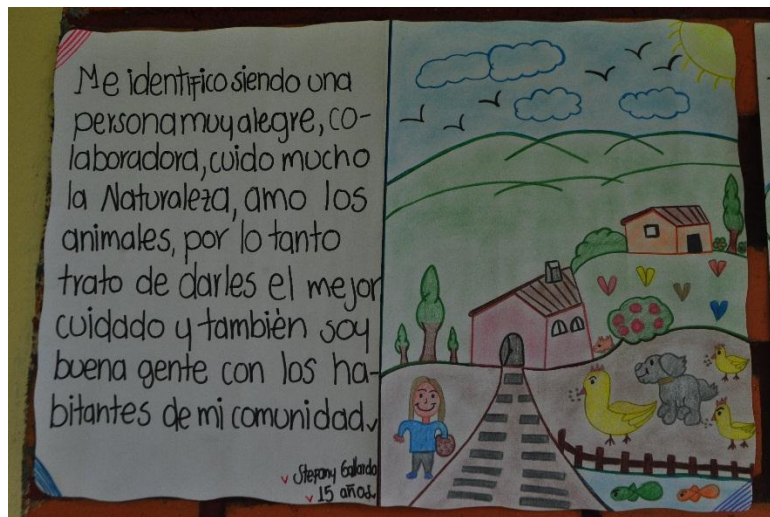 Me identifico siendo una
persona muy alegre, co-
laboradora, cuido mucho
la Naturaleza, amo los
animales, por lo tanto
trato de darles el mejor
cuidado y también soy
buena gente con los ha-
bitantes de mi comunidad.
Stefany Gallardo
15 años.